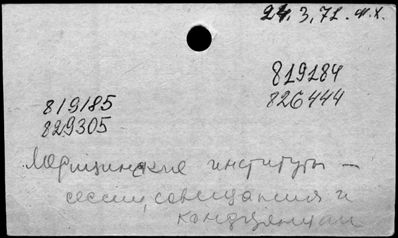 24.3,72. м.х.
819184
819185
826444
829305
Медицинские институты –
сессии, совещания и
конференции